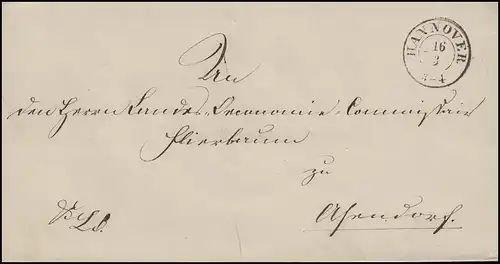 HANNOVER
16
3
3-4
An
den Herrn Landes-Oeconomie-Commissair
Flierbaum
zu
Asendorf.